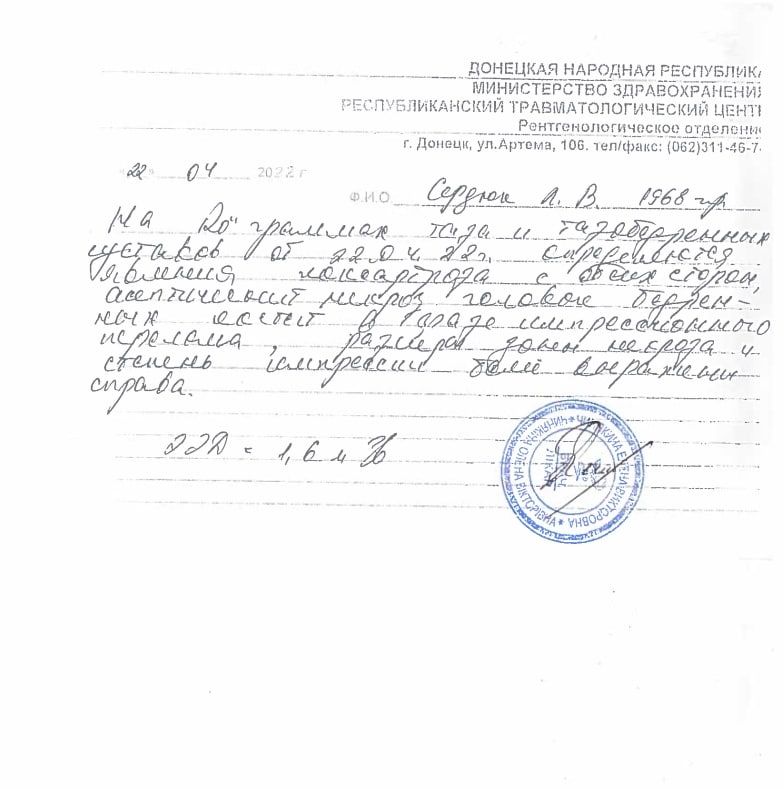 ДОНЕЦКАЯ НАРОДНАЯ РЕСПУБЛИКА
МИНИСТЕРСТВО ЗДРАВОХРАНЕНИЯ
РЕСПУБЛИКАНСКИЙ ТРАВМАТОЛОГИЧЕСКИЙ ЦЕНТ
Рентгенологическое отделение
г. Донецк, ул.Артема, 106. тел/факс: (062)311-46-7
"22" 04 2022 г
Ф.И.О Сердюк А. В. 1968 гр
На Ro" граммах таза и тазобедренных
суставов от 22.04.22г. определяются
явления коксартроза с обеих сторон,
асептический некроз головок бедрен-
ных костей в фазе импрессионного
перелома, размеры зоны некроза и
степень импрессии более выражены
справа.
ЭЭД = 1,6 м Зв
ЕЛЕНА ВИКТОРОВНА * ОЛЕНА ВІКТОРІВНА *